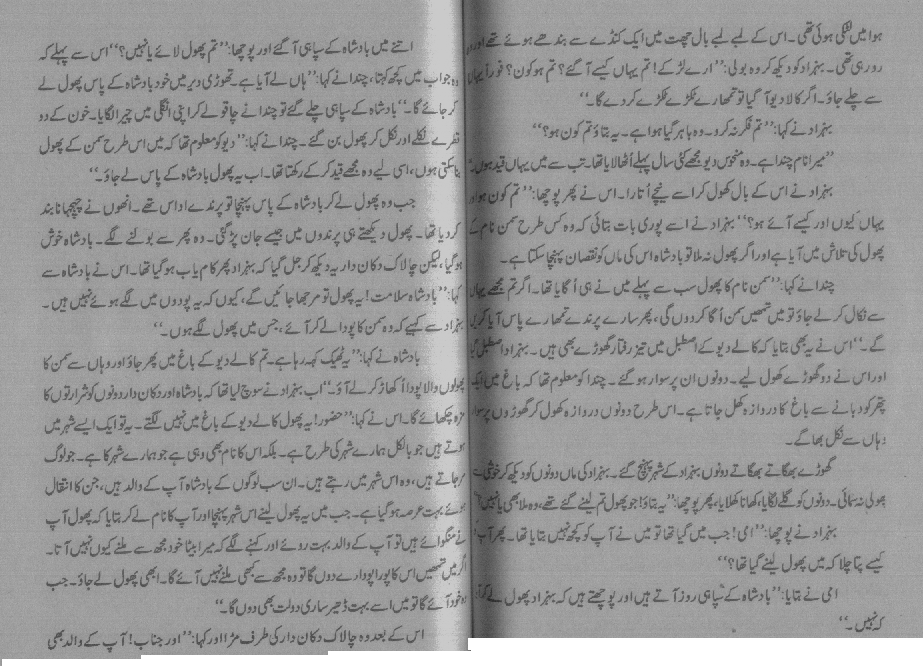 ہوا میں لٹکی ہوئی تھی۔ اس کے لمبے لمبے بال چھت میں ایک کنڈے سے بندھے ہوئے تھے اور وہ
رو رہی تھی۔ بہزاد کو دیکھ کر وہ بولی: ’’ارے لڑکے! تم یہاں کیسے آ گئے؟ تم ہو کون؟ فوراً یہاں
سے چلے جاؤ۔ اگر کالا دیو آ گیا تو تمھارے ٹکڑے ٹکڑے کر دے گا۔‘‘
بہزاد نے کہا: ’’تم فکر نہ کرو۔ وہ باہر گیا ہوا ہے۔ یہ بتاؤ تم کون ہو؟‘‘
’’میرا نام چندا ہے۔ وہ منحوس دیو مجھے کئی سال پہلے اُٹھا لایا تھا۔ تب سے میں یہاں قید ہوں۔‘‘
بہزاد نے اس کے بال کھول کر اسے نیچے اُتارا۔ اس نے پھر پوچھا: ’’تم کون ہو اور
یہاں کیوں اور کیسے آئے ہو؟‘‘ بہزاد نے اسے پوری بات بتائی کہ وہ کس طرح سمن نام کے
پھول کی تلاش میں آیا ہے اور اگر پھول نہ ملا تو بادشاہ اس کی ماں کو نقصان پہنچا سکتا ہے۔
چندا نے کہا: ’’سمن نام کا پھول سب سے پہلے میں نے ہی اُگایا تھا۔ اگر تم مجھے یہاں
سے نکال کر لے جاؤ تو میں تمھیں سمن اُگا کر دوں گی، پھر سارے پرندے تمھارے پاس آیا کریں
گے۔‘‘ اس نے یہ بھی بتایا کہ کالے دیو کے اصطبل میں تیز رفتار گھوڑے بھی ہیں۔ بہزاد اصطبل گیا
اور اس نے دو گھوڑے کھول لیے۔ دونوں ان پر سوار ہو گئے۔ چندا کو معلوم تھا کہ باغ میں ایک
پتھر کو دبانے سے باغ کا دروازہ کھل جاتا ہے۔ اس طرح دونوں دروازہ کھول کر گھوڑوں پر سوار
وہاں سے نکل بھاگے۔
گھوڑے بھگاتے بھگاتے دونوں بہزاد کے شہر پہنچ گئے۔ بہزاد کی ماں دونوں کو دیکھ کر خوشی سے
پھولی نہ سمائی۔ دونوں کو گلے لگایا، کھانا کھلایا، پھر پوچھا: ’’یہ بتاؤ! جو پھول تم لینے گئے تھے، وہ ملا بھی یا نہیں؟‘‘
بہزاد نے پوچھا: ’’امی! جب میں گیا تھا تو میں نے آپ کو کچھ نہیں بتایا تھا۔ پھر آپ کو
کیسے پتا چلا کہ میں پھول لینے گیا تھا؟‘‘
امی نے بتایا: ’’بادشاہ کے سپاہی روز آتے ہیں اور پوچھتے ہیں کہ بہزاد پھول لے کر آیا
کہ نہیں۔‘‘
اتنے میں بادشاہ کے سپاہی آ گئے اور پوچھا: ’’تم پھول لائے یا نہیں؟‘‘ اس سے پہلے کہ
وہ جواب میں کچھ کہتا، چندا نے کہا: ’’ہاں لے آیا ہے۔ تھوڑی دیر میں خود بادشاہ کے پاس پھول لے
کر جائے گا۔‘‘ بادشاہ کے سپاہی چلے گئے تو چندا نے چاقو لے کر اپنی انگلی میں چیرا لگایا۔ خون کے دو
قطرے نکلے اور نکل کر پھول بن گئے۔ چندا نے کہا: ’’دیو کو معلوم تھا کہ میں اس طرح سمن کے پھول
بنا سکتی ہوں، اسی لیے وہ مجھے قید کر کے رکھتا تھا۔ اب یہ پھول بادشاہ کے پاس لے جاؤ۔‘‘
جب وہ پھول لے کر بادشاہ کے پاس پہنچا تو پرندے اداس تھے۔ انھوں نے چہچہانا بند
کر دیا تھا۔ پھول دیکھتے ہی پرندوں میں جیسے جان پڑ گئی۔ وہ پھر سے بولنے لگے۔ بادشاہ خوش
ہو گیا، لیکن چالاک دکان دار یہ دیکھ کر جل گیا کہ بہزاد پھر کام یاب ہو گیا تھا۔ اس نے بادشاہ سے
کہا: ’’بادشاہ سلامت! یہ پھول تو مرجھا جائیں گے، کیوں کہ یہ پودوں میں لگے ہوئے نہیں ہیں۔
بہزاد سے کہیے کہ وہ سمن کا پودا لے کر آئے، جس میں پھول لگے ہوں۔‘‘
بادشاہ نے کہا: ’’یہ ٹھیک کہہ رہا ہے۔ تم کالے دیو کے باغ میں پھر جاؤ اور وہاں سے سمن کا
پھولوں والا پودا اُکھاڑ کر لے آؤ۔‘‘ اب بہزاد نے سوچ لیا تھا کہ بادشاہ اور دکان دار دونوں کو شرارتوں کا
مزہ چکھائے گا۔ اس نے کہا: ’’حضور! یہ پھول کالے دیو کے باغ میں نہیں لگتے۔ یہ تو ایک ایسے شہر میں
ہوتے ہیں جو بالکل ہمارے شہر کی طرح ہے۔ بلکہ اس کا نام بھی وہی ہے جو ہمارے شہر کا ہے۔ جو لوگ
مر جاتے ہیں، وہ اس شہر میں رہتے ہیں۔ ان سب لوگوں کے بادشاہ آپ کے والد ہیں، جن کا انتقال
ہوئے بہت عرصہ ہو گیا ہے۔ جب میں یہ پھول لینے اس شہر پہنچا اور آپ کا نام لے کر بتایا کہ پھول آپ
نے منگوائے ہیں تو آپ کے والد بہت روئے اور کہنے لگے کہ میرا بیٹا خود مجھ سے ملنے کیوں نہیں آتا۔
اگر میں تمھیں اس کا پورا پودا دے دوں گا تو وہ مجھ سے کبھی ملنے نہیں آئے گا۔ ابھی پھول لے جاؤ۔ جب
وہ خود آئے گا تو میں اسے بہت ڈھیر ساری دولت بھی دوں گا۔‘‘
اس کے بعد وہ چالاک دکان دار کی طرف مڑا اور کہا: ’’اور جناب! آپ کے والد بھی